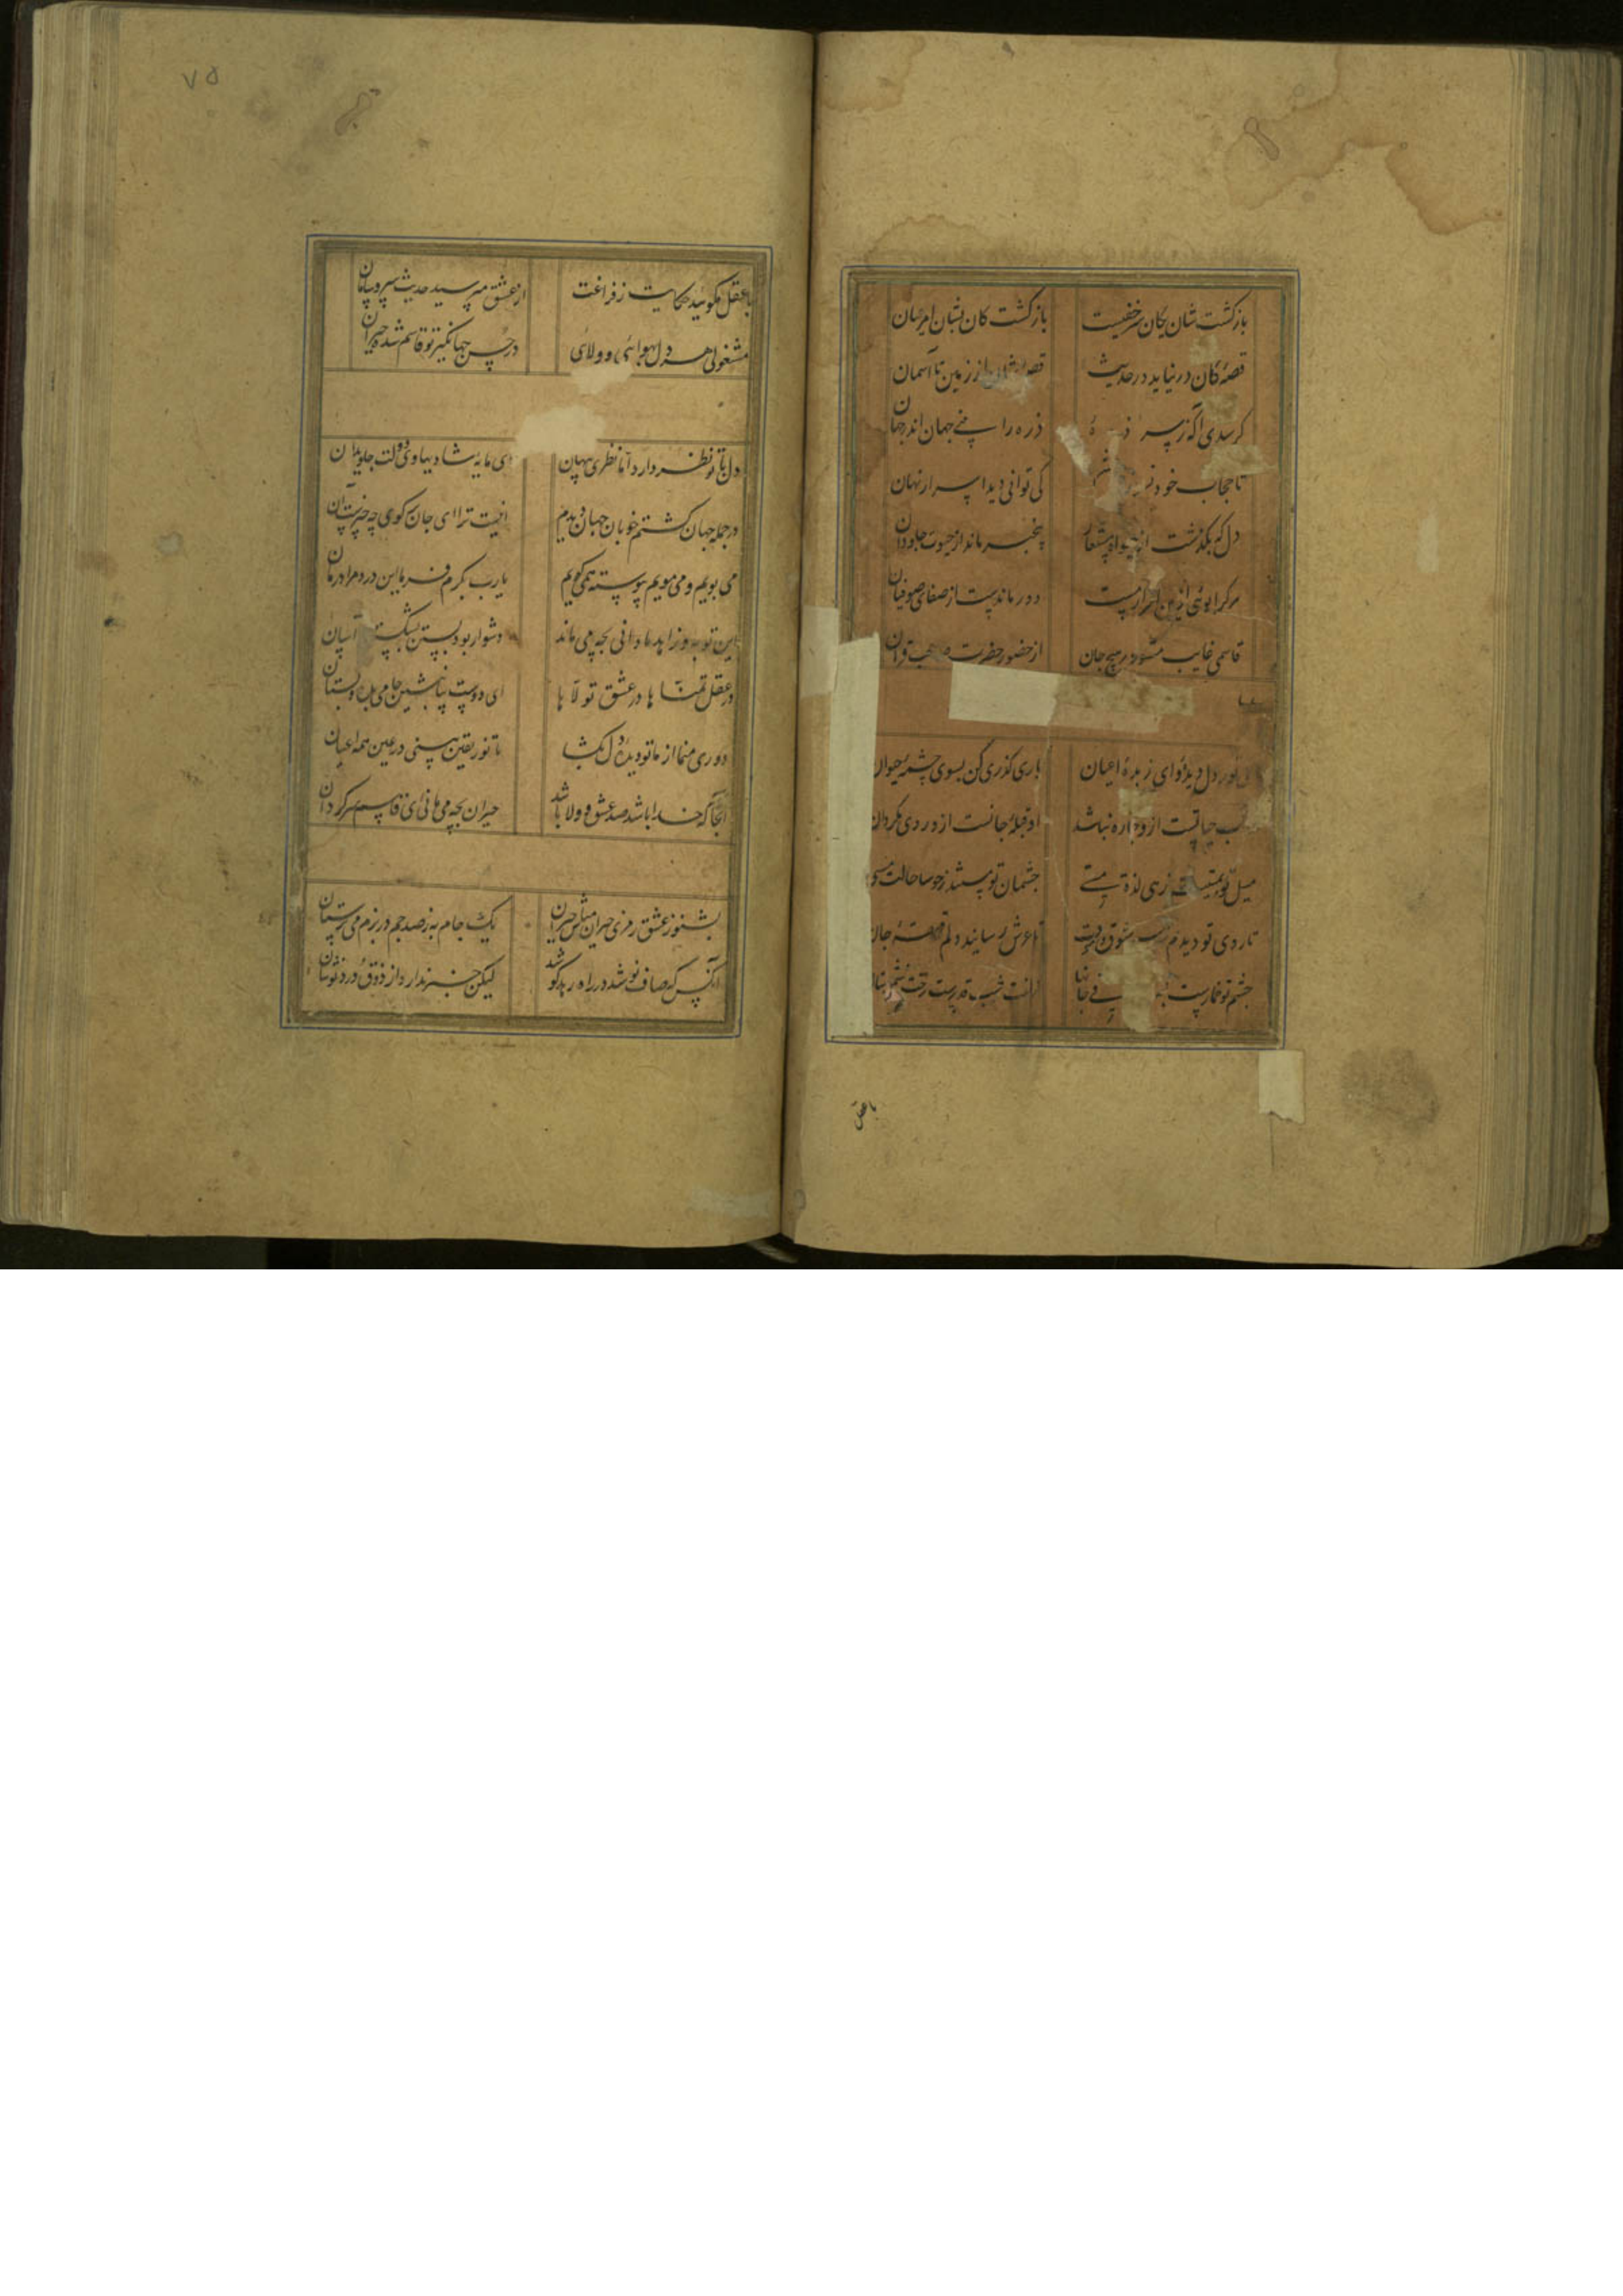 بازگشت شان بکان سر خفیست بازگشت کان بشان امر عیان
قصهٔ کان در نیاید در حدیث قصهٔ شان از زمین تا آسمان
گر سدی آگه ز سر ذره ذره را بینی جهان اندر جهان
تا حجاب خود کی توانی دید اسرار نهان
دل که بگذشت از بیخبر ماند از حیوت جاودان
هر کرا بوئی ازین اسرار نیست دور ماندست از صفای صوفیان
قاسمی غایب مشو در هیچ جان از حضور حضرت صاحب قران
نور دل و دیده وای زبدهٔ اعیان باری گذری کن بسوی چشمهٔ حیوان
حیاتست ازو چاره نباشد او قبلهٔ جانست ازو روی مگردان
میل تو زهی لذة مستی چشمان تو
تا روی تو دیدم شوق تا عرش رسانید دلم
چشم تو
باعقل
۷۵
باعقل مگوئید حکایت ز فراغت از عشق مپرسید حدیث سر و سامان
مشغولی هر دل بهوائی و ولائی در حسن جهانگیر تو قاسم شده حیران
دل با تو نظر دارد اما نظری پنهان ای مایهٔ شادیها وی دولت جاویدان
در جمله جهان گشتم خوبان جهان دیدم آنیست ترا ای جان گوی چه خبرست آن
می پویم و می مویم پیوسته همی گویم یارب بکرم فرما این درد مرا درمان
این توبه و زاهد ما دانی بچه می ماند دشوار بود بستن بشکستن آسان
در عقل تمنا ها در عشق تولا ها ای دوست بیا بنشین جامی بده و بستان
دوری منما از ما تو دیدهٔ دل بگشا تا نور یقین بینی در عین همه اعیان
آنجا که خدا باشد صد عشق و ولا باشد حیران بچه می مانی ای قاسم سرگردان
بشنو ز عشق رمزی حیران مثل حیران یک جام به ز صد جم در بزم می پرستان
آنکس که صاف نوشد در راه زهد کوشد لیکن خبر ندارد از ذوق درد نوشان